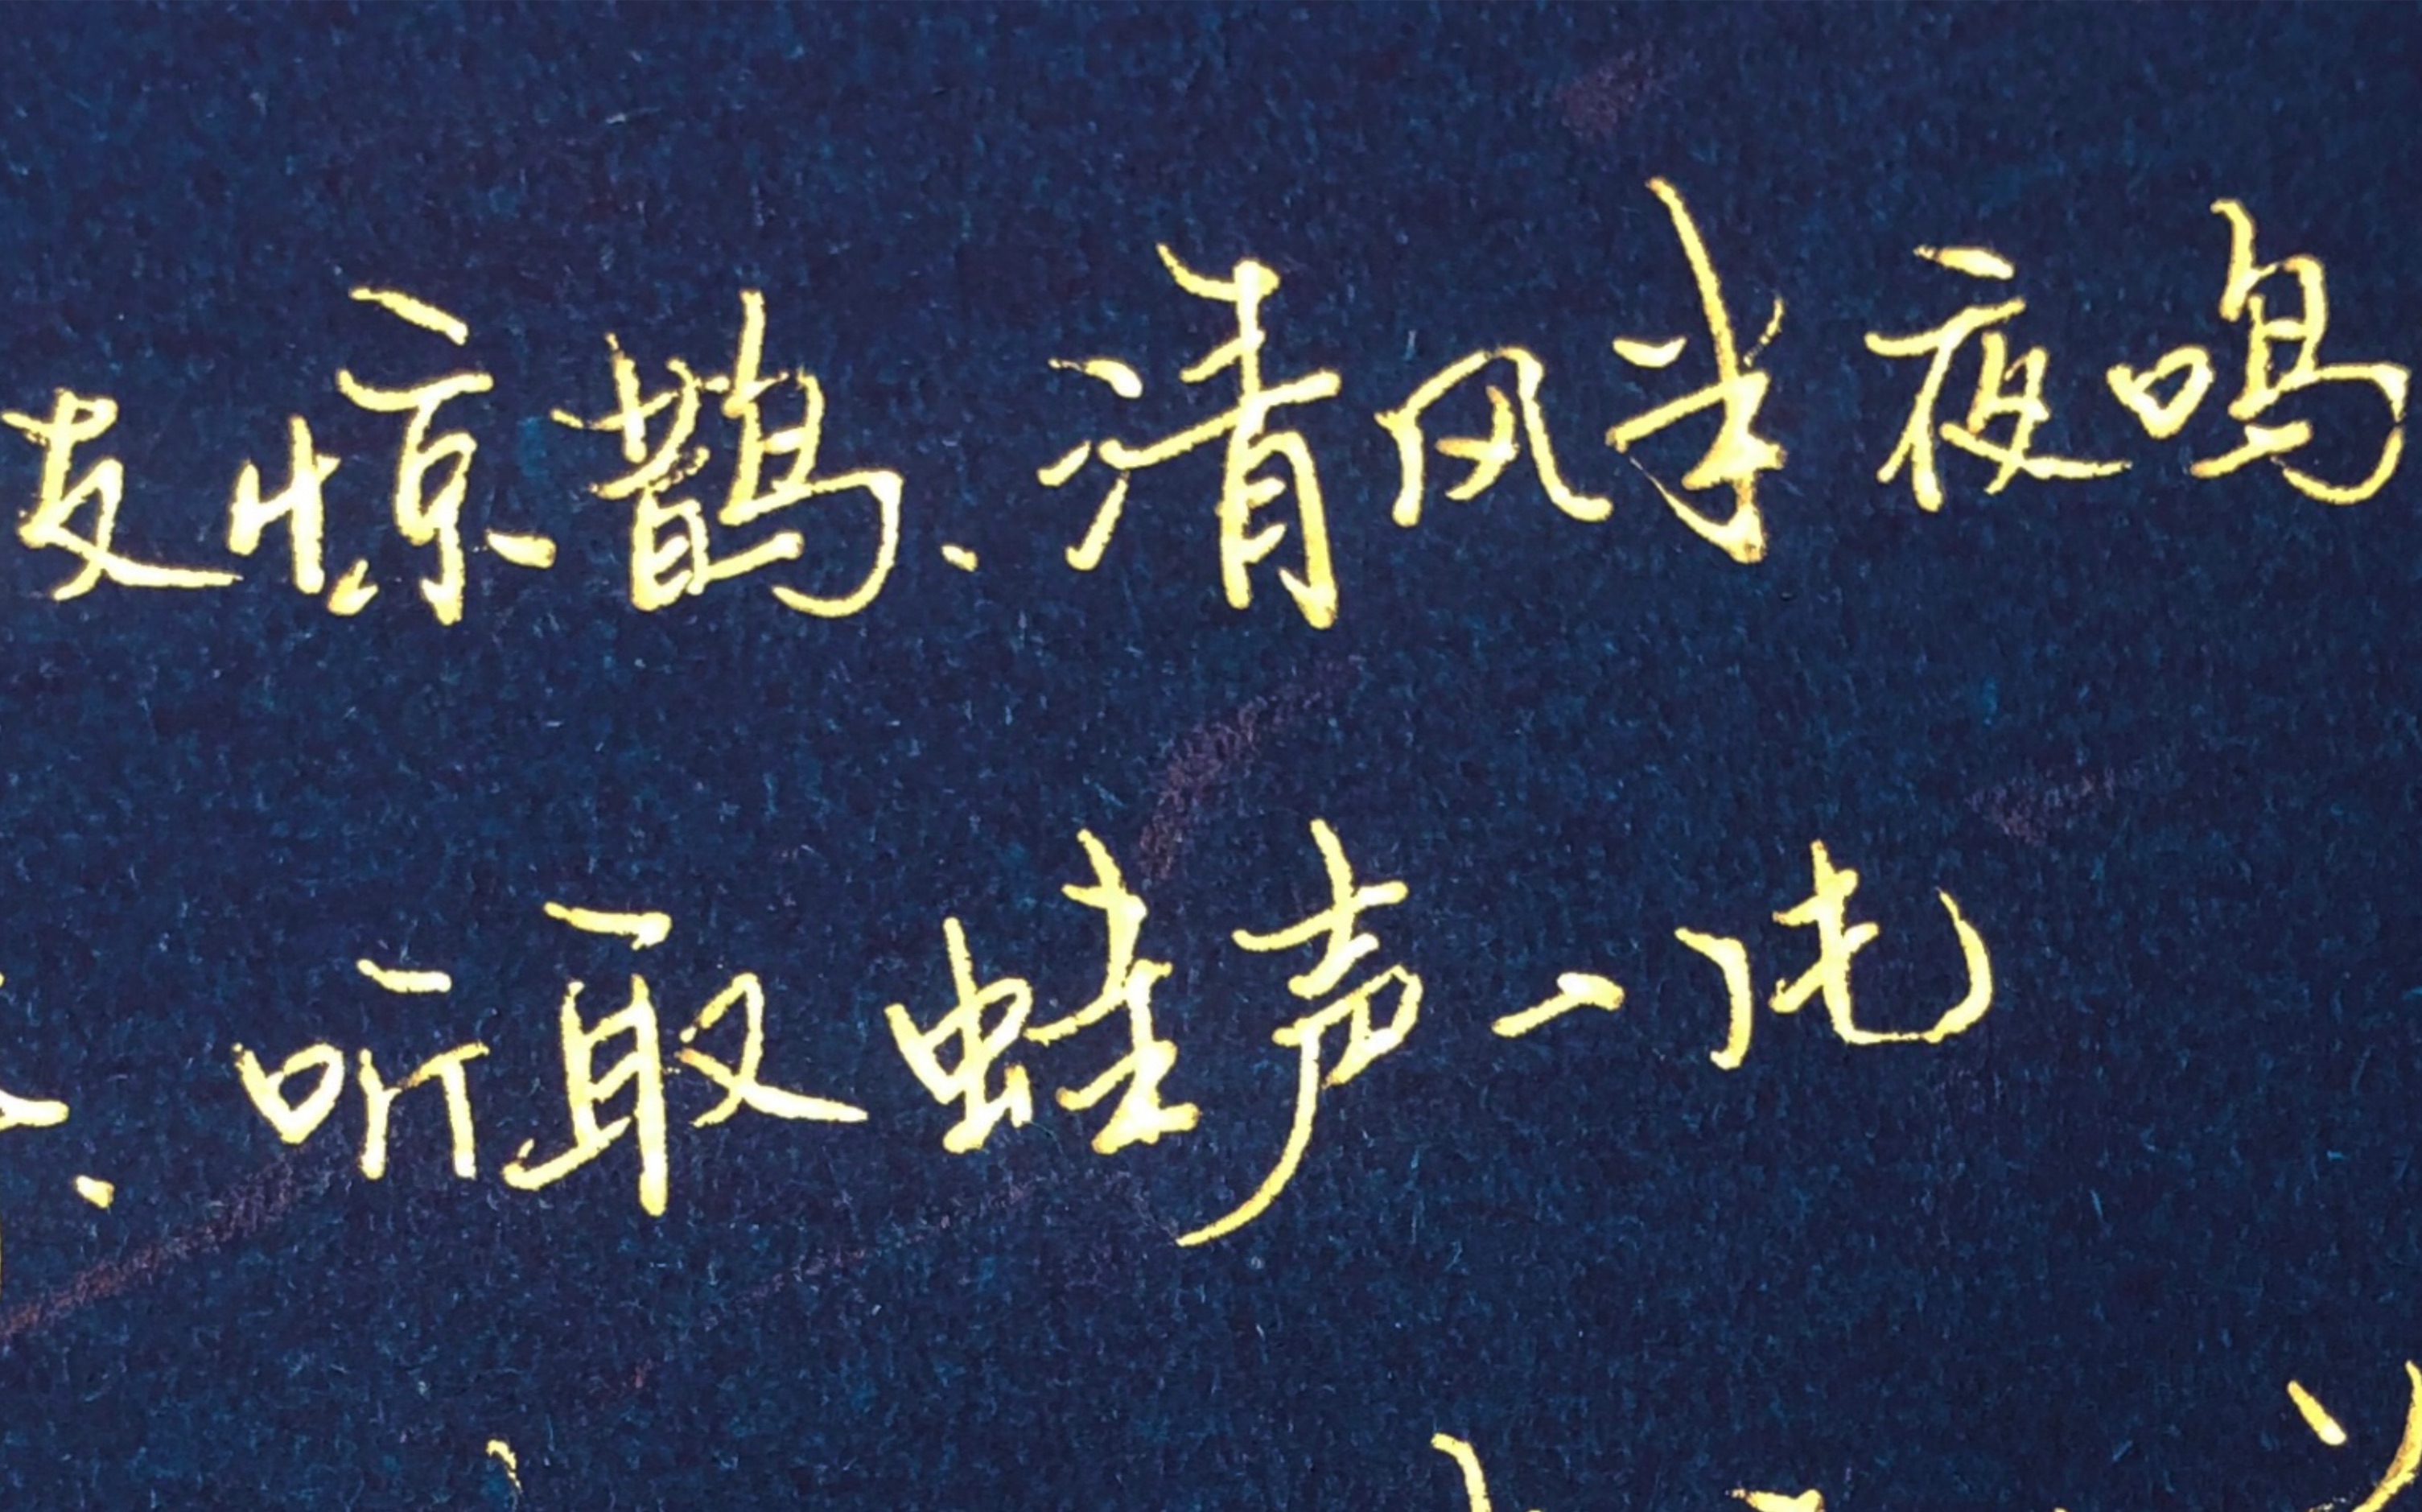 惊鹊、清风半夜鸣
、听取蛙声一